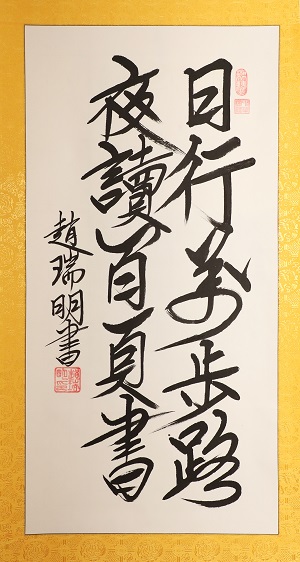 日行万步路
夜讀百頁書
趙瑞明書